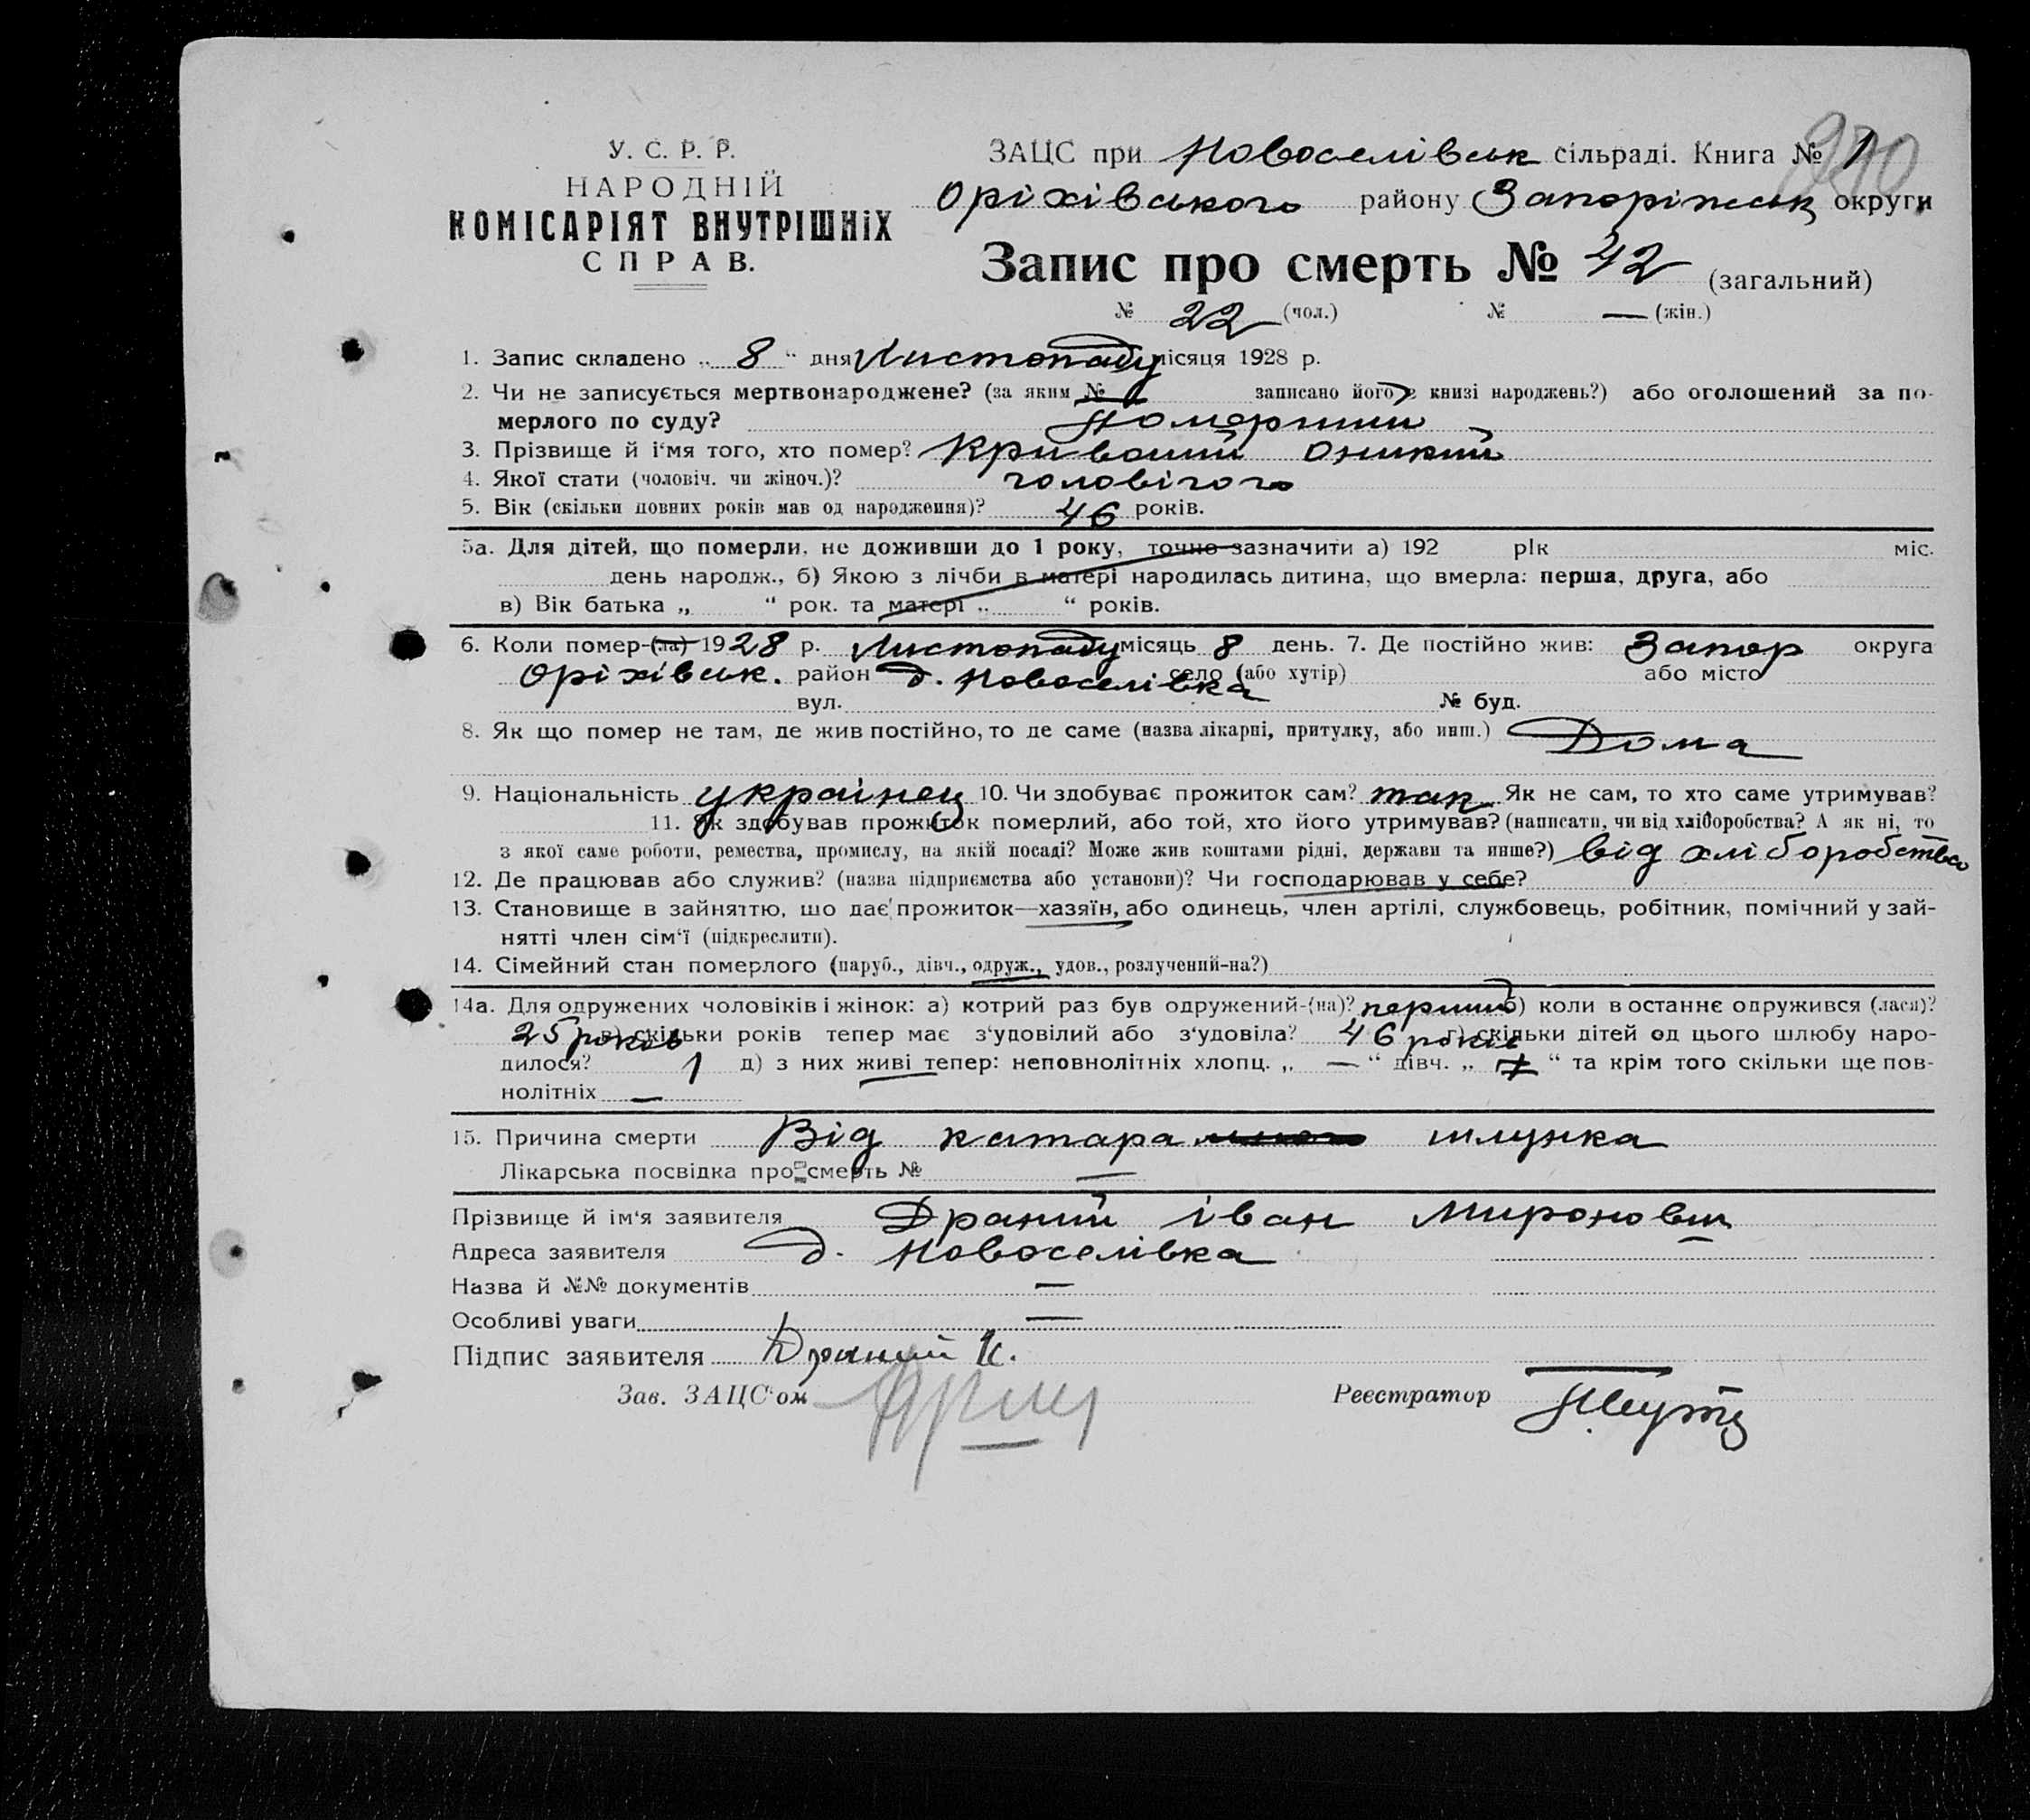 У. С. Р. Р.
НАРОДНІЙ
КОМІСАРІЯТ ВНУТРІШНІХ
СПРАВ.
ЗАЦС при Новоселівськ сільраді. Книга № 1
290
Оріхівського району Запоріжськ округи
Запис про смерть № 42 (загальний)
№ 22 (чол.) № — (жін.)
1. Запис складено „ 8 “ дня Листопаду місяця 1928 р.
2. Чи не записується мертвонароджене? (за яким № записано його в книзі народжень?) або оголошений за по-
мерлого по суду? Померший
3. Прізвище й і‘мя того, хто помер? Кривоший Оникий
4. Якої стати (чоловіч. чи жіноч.)? чоловічого
5. Вік (скільки повних років мав од народження)? 46 років.
5а. Для дітей, що померли, не доживши до 1 року, точно зазначити а) 192 рік міс.
день народж., б) Якою з лічби в матері народилась дитина, що вмерла: перша, друга, або
в) Вік батька „ “ рок. та матері „ “ років.
6. Коли помер-(ла) 1928 р. Листопаду місяць 8 день. 7. Де постійно жив: Запор округа
Оріхівськ. район д. Новоселівка село (або хутір) або місто
вул. № буд.
8. Як що помер не там, де жив постійно, то де саме (назва лікарні, притулку, або инш.) Дома
9. Національність українец 10. Чи здобуває прожиток сам? так Як не сам, то хто саме утримував?
11. Як здобував прожиток померлий, або той, хто його утримував? (написати, чи від хліборобства? А як ні, то
з якої саме роботи, ремества, промислу, на якій посаді? Може жив коштами рідні, держави та инше?) від хліборобства
12. Де працював або служив? (назва підприємства або установи)? Чи господарював у себе?
13. Становище в зайняттю, що дає прожиток—хазяїн, або одинець, член артілі, службовець, робітник, помічний у зай-
нятті член сім‘ї (підкреслити).
14. Сімейний стан померлого (паруб., дівч., одруж., удов., розлучений-на?)
14а. Для одружених чоловіків і жінок: а) котрий раз був одружений-(на)? перший б) коли в останнє одружився (лася)?
25 років в) скільки років тепер має з‘удовілий або з‘удовіла? 46 років г) скільки дітей од цього шлюбу наро-
дилося? 1 д) з них живі тепер: неповнолітніх хлопц. „ — “ дівч. „ “ та крім того скільки ще пов-
нолітніх —
15. Причина смерти Від катара шлунка
Лікарська посвідка про смерть № —
Прізвище й ім‘я заявителя Драний Іван Миронович
Адреса заявителя д. Новоселівка
Назва й №№ документів —
Особливі уваги —
Підпис заявителя Драний И.
Зав. ЗАЦС‘ом Реєстратор